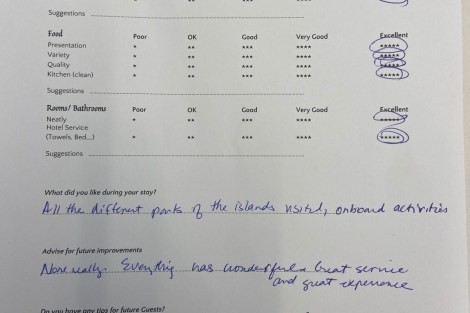 Suggestions
Food Poor OK Good Very Good Excellent
Presentation * ** *** **** *****
Variety * ** *** **** *****
Quality * ** *** **** *****
Kitchen (clean) * ** *** **** *****
Suggestions
Rooms/ Bathrooms Poor OK Good Very Good Excellent
Neatly * ** *** **** *****
Hotel Service
(Towels, Bed,..) * ** *** **** *****
Suggestions
What did you like during your stay?
All the different parts of the islands visited, onboard activities
Advise for future improvements
None really. Everything was wonderful. Great service
and great experience
Do you have any tips for future Guests?